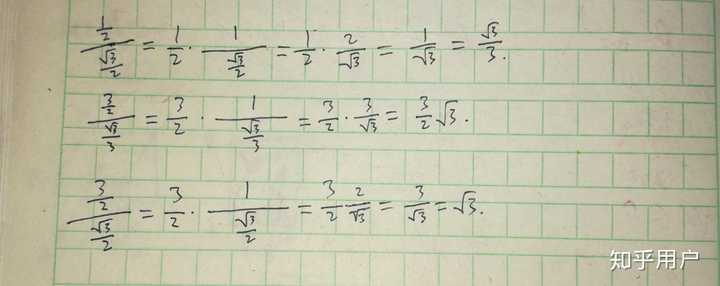 \frac{\frac{1}{2}}{\frac{\sqrt{3}}{2}} = \frac{1}{2} \cdot \frac{1}{\frac{\sqrt{3}}{2}} = \frac{1}{2} \cdot \frac{2}{\sqrt{3}} = \frac{1}{\sqrt{3}} = \frac{\sqrt{3}}{3}.
\frac{\frac{3}{2}}{\frac{\sqrt{3}}{3}} = \frac{3}{2} \cdot \frac{1}{\frac{\sqrt{3}}{3}} = \frac{3}{2} \cdot \frac{3}{\sqrt{3}} = \frac{3}{2}\sqrt{3}.
\frac{\frac{3}{2}}{\frac{\sqrt{3}}{2}} = \frac{3}{2} \cdot \frac{1}{\frac{\sqrt{3}}{2}} = \frac{3}{2} \frac{2}{\sqrt{3}} = \frac{3}{\sqrt{3}} = \sqrt{3}.
知乎用户